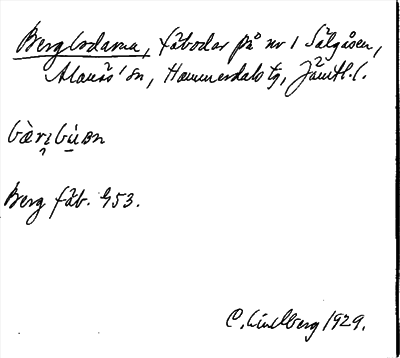 Bergbodarna, fäbodar på nr 1 Sälgåsen,
Alanäs' sn, Hammerdals tg, Jämtl. l.
bæ̀ri̯bu̠̇ɵn
Berg fäb. G53.
C. Lindberg 1929.